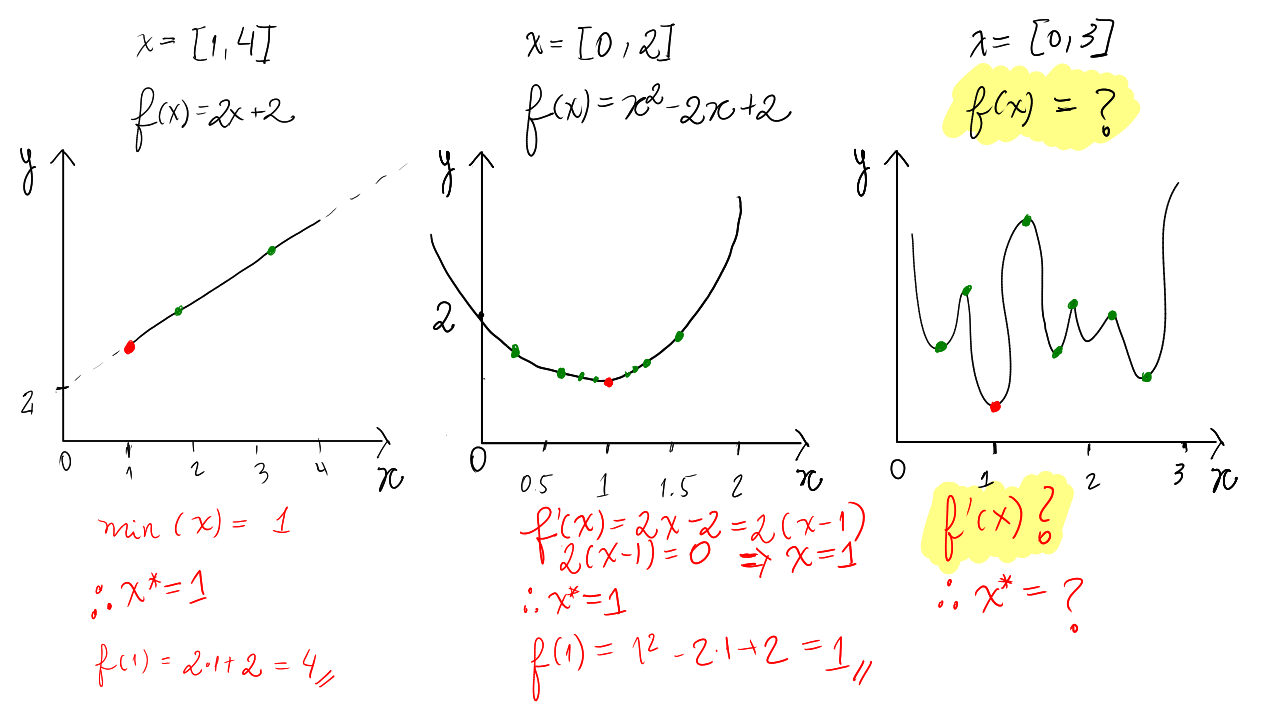 x = [1, 4]
f(x) = 2x + 2
y
2
0 1 2 3 4 x
min (x) = 1
∴ x* = 1
f(1) = 2·1 + 2 = 4 //
x = [0, 2]
f(x) = x² - 2x + 2
y
2
0 0.5 1 1.5 2 x
f'(x) = 2x - 2 = 2(x-1)
2(x-1) = 0 ⇒ x = 1
∴ x* = 1
f(1) = 1² - 2·1 + 2 = 1 //
x = [0, 3]
f(x) = ?
y
0 1 2 3 x
f'(x) ?
∴ x* = ?